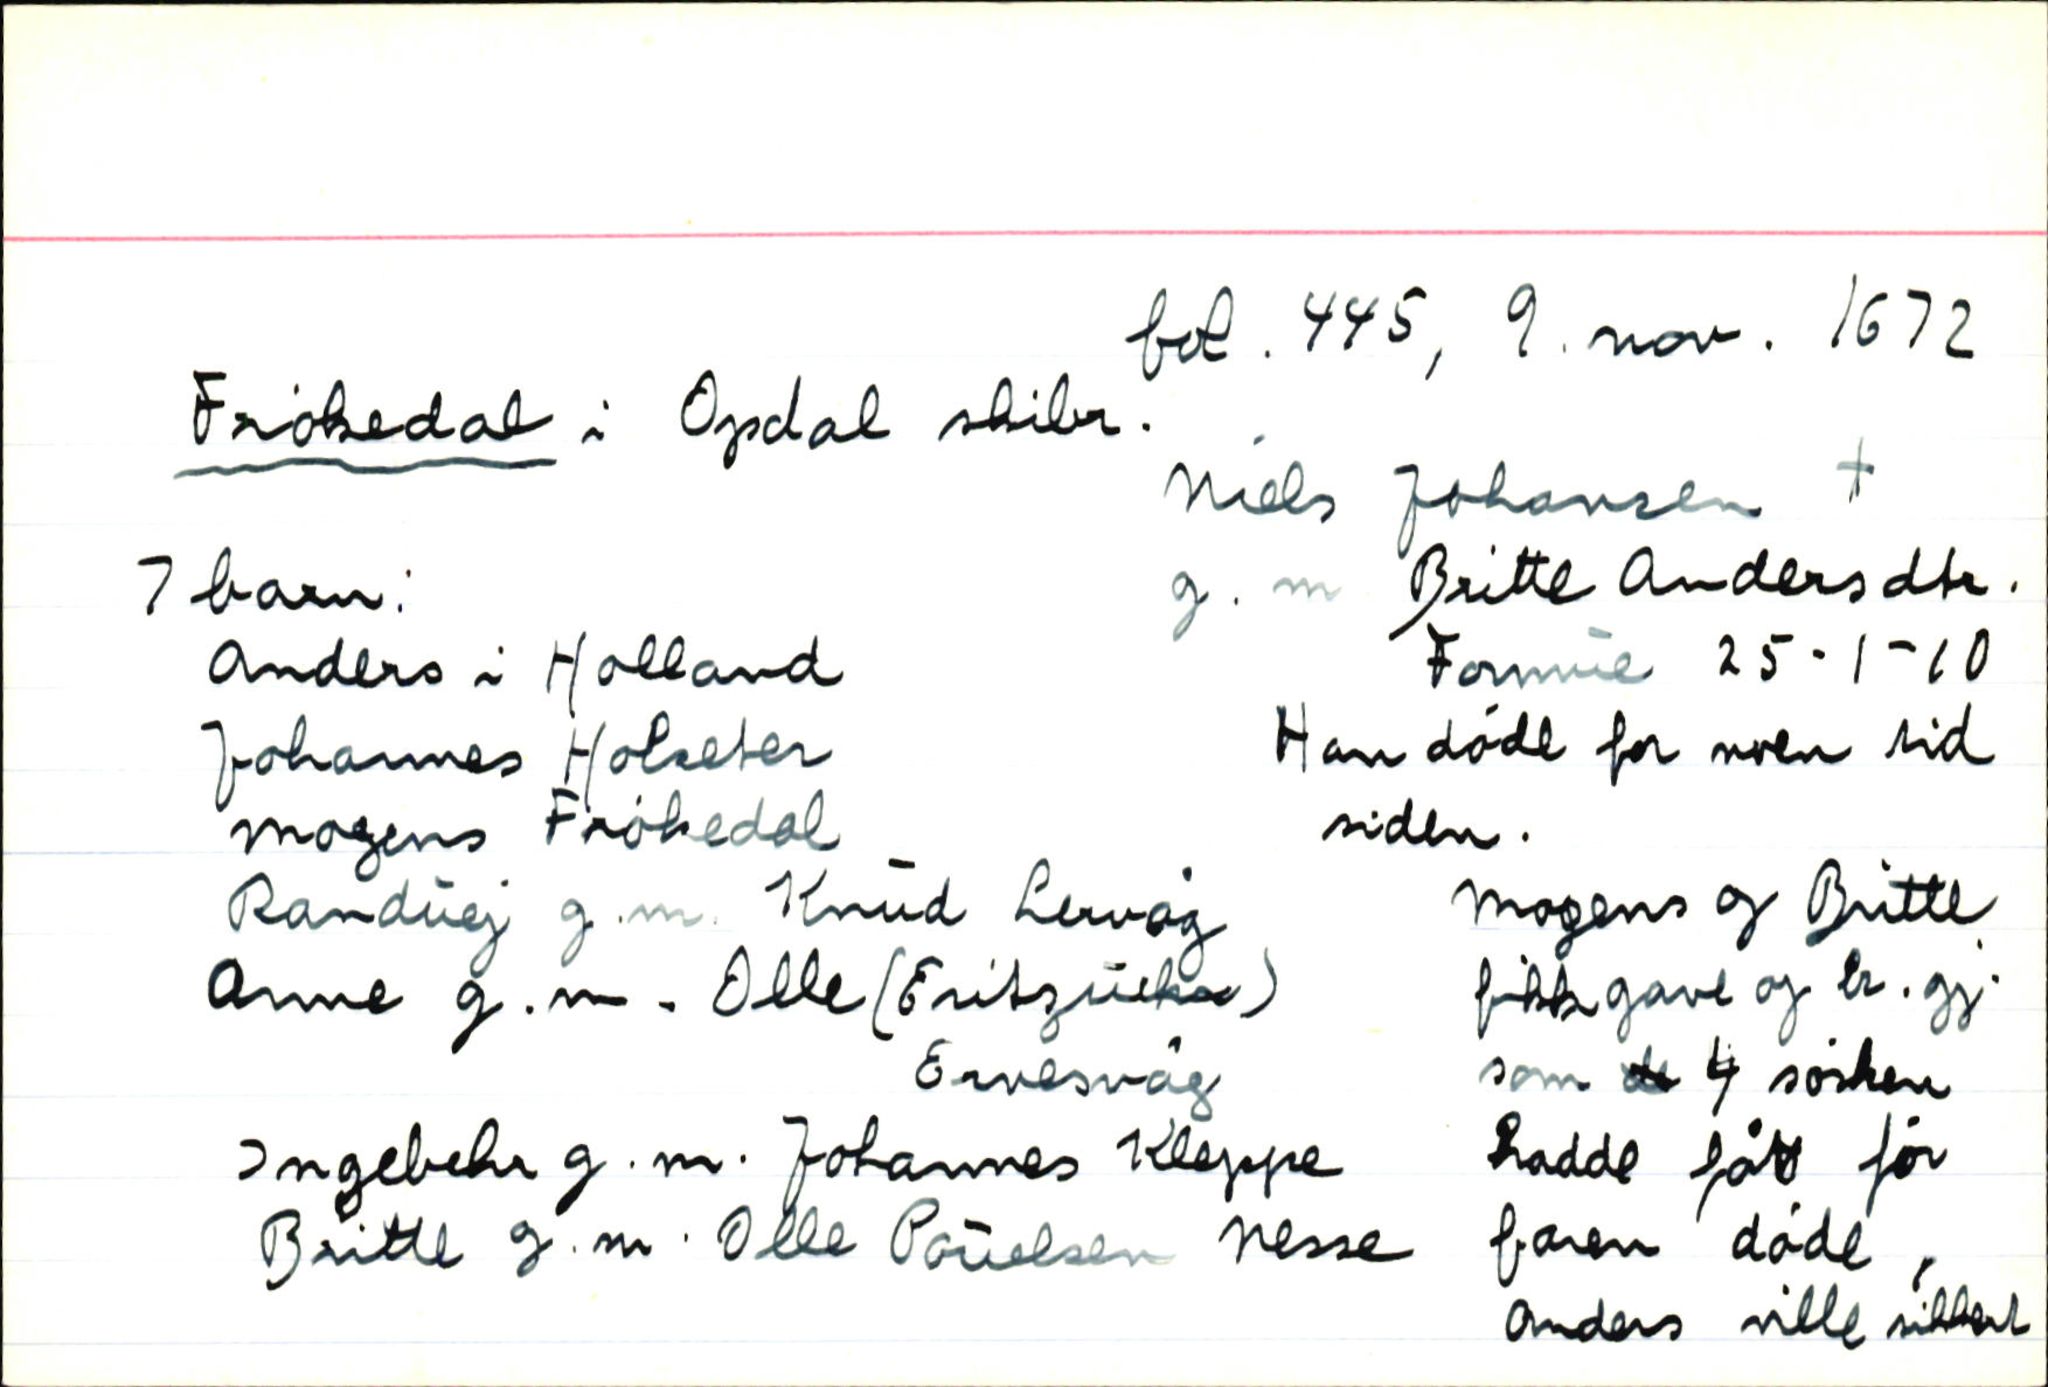 fol. 445, 9. nov. 1672
Frøkedal i Opdal skibr.
Niels Johansen †
g. m. Britte Andersdtr.
Formue 25-1-10
Han døde for noen tid
siden.
7 barn:
Anders i Holland
Johannes Holseter
Mogens Frøkedal
Randuej g.m. Knud Lervåg
Anne g.m. Olle (Fritzriche)
Ervesvåg
Ingebehr g.m. Johannes Kleppe
Britte g.m. Olle Pouelsen Nesse
Mogens og Britte
fikk gave og br. gj.
som 4 søsken
hadde fått før
faren døde,
Anders ville sikkert